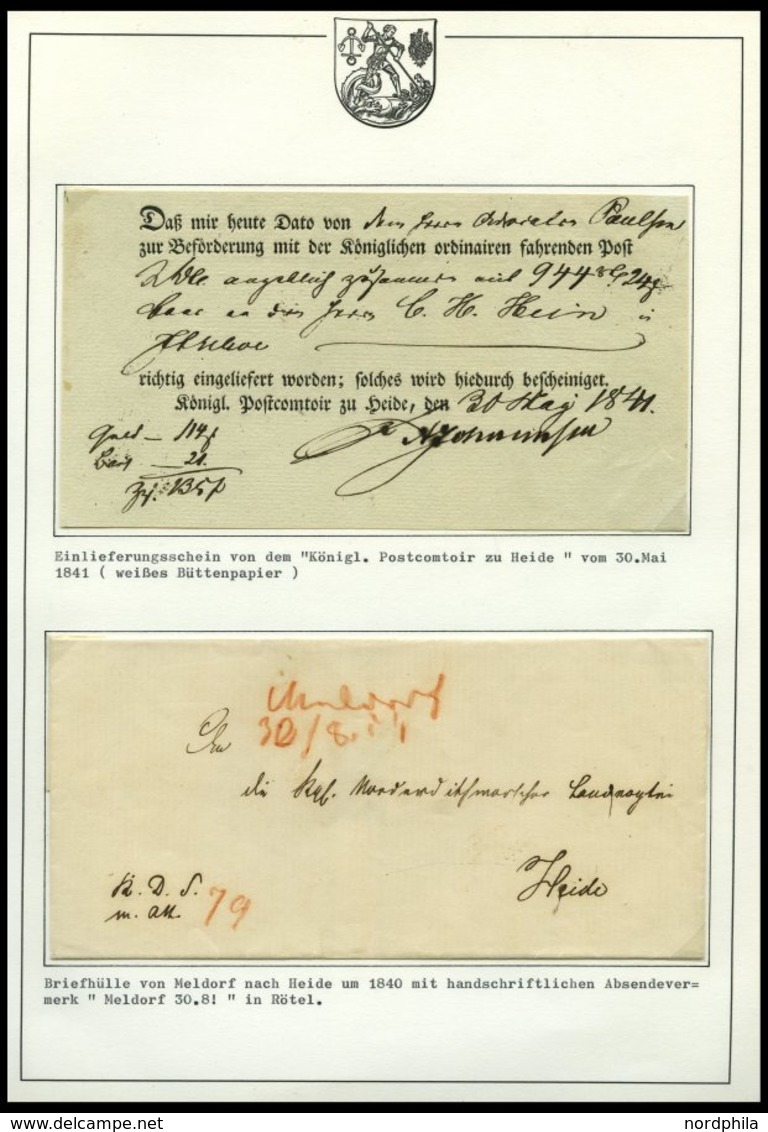 Daß mir heute Dato von dem Herrn Advocaten Paulsen
zur Beförderung mit der Königlichen ordinairen fahrenden Post
angeblich zusammen mit 944
an den Herrn C. H. Hein in
Itzehoe
richtig eingeliefert worden; solches wird hiedurch bescheiniget.
Königl. Postcomtoir zu Heide, den 30 May 1841.
Einlieferungsschein von dem "Königl. Postcomtoir zu Heide " vom 30.Mai
1841 ( weißes Büttenpapier )
Meldorf
An 30/8. !
die Kgl. Norderdithmarscher Landvogtei
Heide
K. D. S.
m. Att. 79
Briefhülle von Meldorf nach Heide um 1840 mit handschriftlichen Absendever=
merk " Meldorf 30.8! " in Rötel.
www.delcampe.net
nordphila